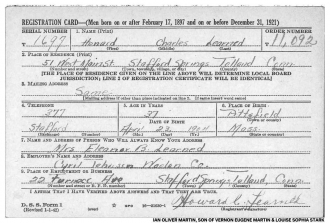 REGISTRATION CARD—(Men born on or after February 17, 1897 and on or before December 31, 1921)
SERIAL NUMBER 1. NAME (Print) ORDER NUMBER
Howard Charles Learned 11,092
(First) (Middle) (Last)
2. PLACE OF RESIDENCE (Print)
51 West Main St. Stafford Springs Tolland Conn.
(Number and street) (Town, township, village, or city) (County) (State)
[THE PLACE OF RESIDENCE GIVEN ON THE LINE ABOVE WILL DETERMINE LOCAL BOARD
JURISDICTION; LINE 2 OF REGISTRATION CERTIFICATE WILL BE IDENTICAL]
3. MAILING ADDRESS
Same
[Mailing address if other than place indicated on line 2. If same insert word same]
4. TELEPHONE 5. AGE IN YEARS 6. PLACE OF BIRTH
377 37
DATE OF BIRTH
Stafford April 23 1904 Mass.
(Exchange) (Number) (Mo.) (Day) (Yr.) (State or country)
7. NAME AND ADDRESS OF PERSON WHO WILL ALWAYS KNOW YOUR ADDRESS
Mrs. Eleanor B. Learned
8. EMPLOYER'S NAME AND ADDRESS
Cyril Johnson Woolen Co.
9. PLACE OF EMPLOYMENT OR BUSINESS
22 Furnace Ave Stafford Springs Tolland, Conn.
(Number and street or R. F. D. number) (Town) (County) (State)
I AFFIRM THAT I HAVE VERIFIED ABOVE ANSWERS AND THAT THEY ARE TRUE.
D. S. S. Form 1
(Revised 1-1-42) (over)
Howard C. Learned
IAN OLIVER MARTIN, SON OF VERNON EUGENE MARTIN & LOUISE SOPHIA STAHS